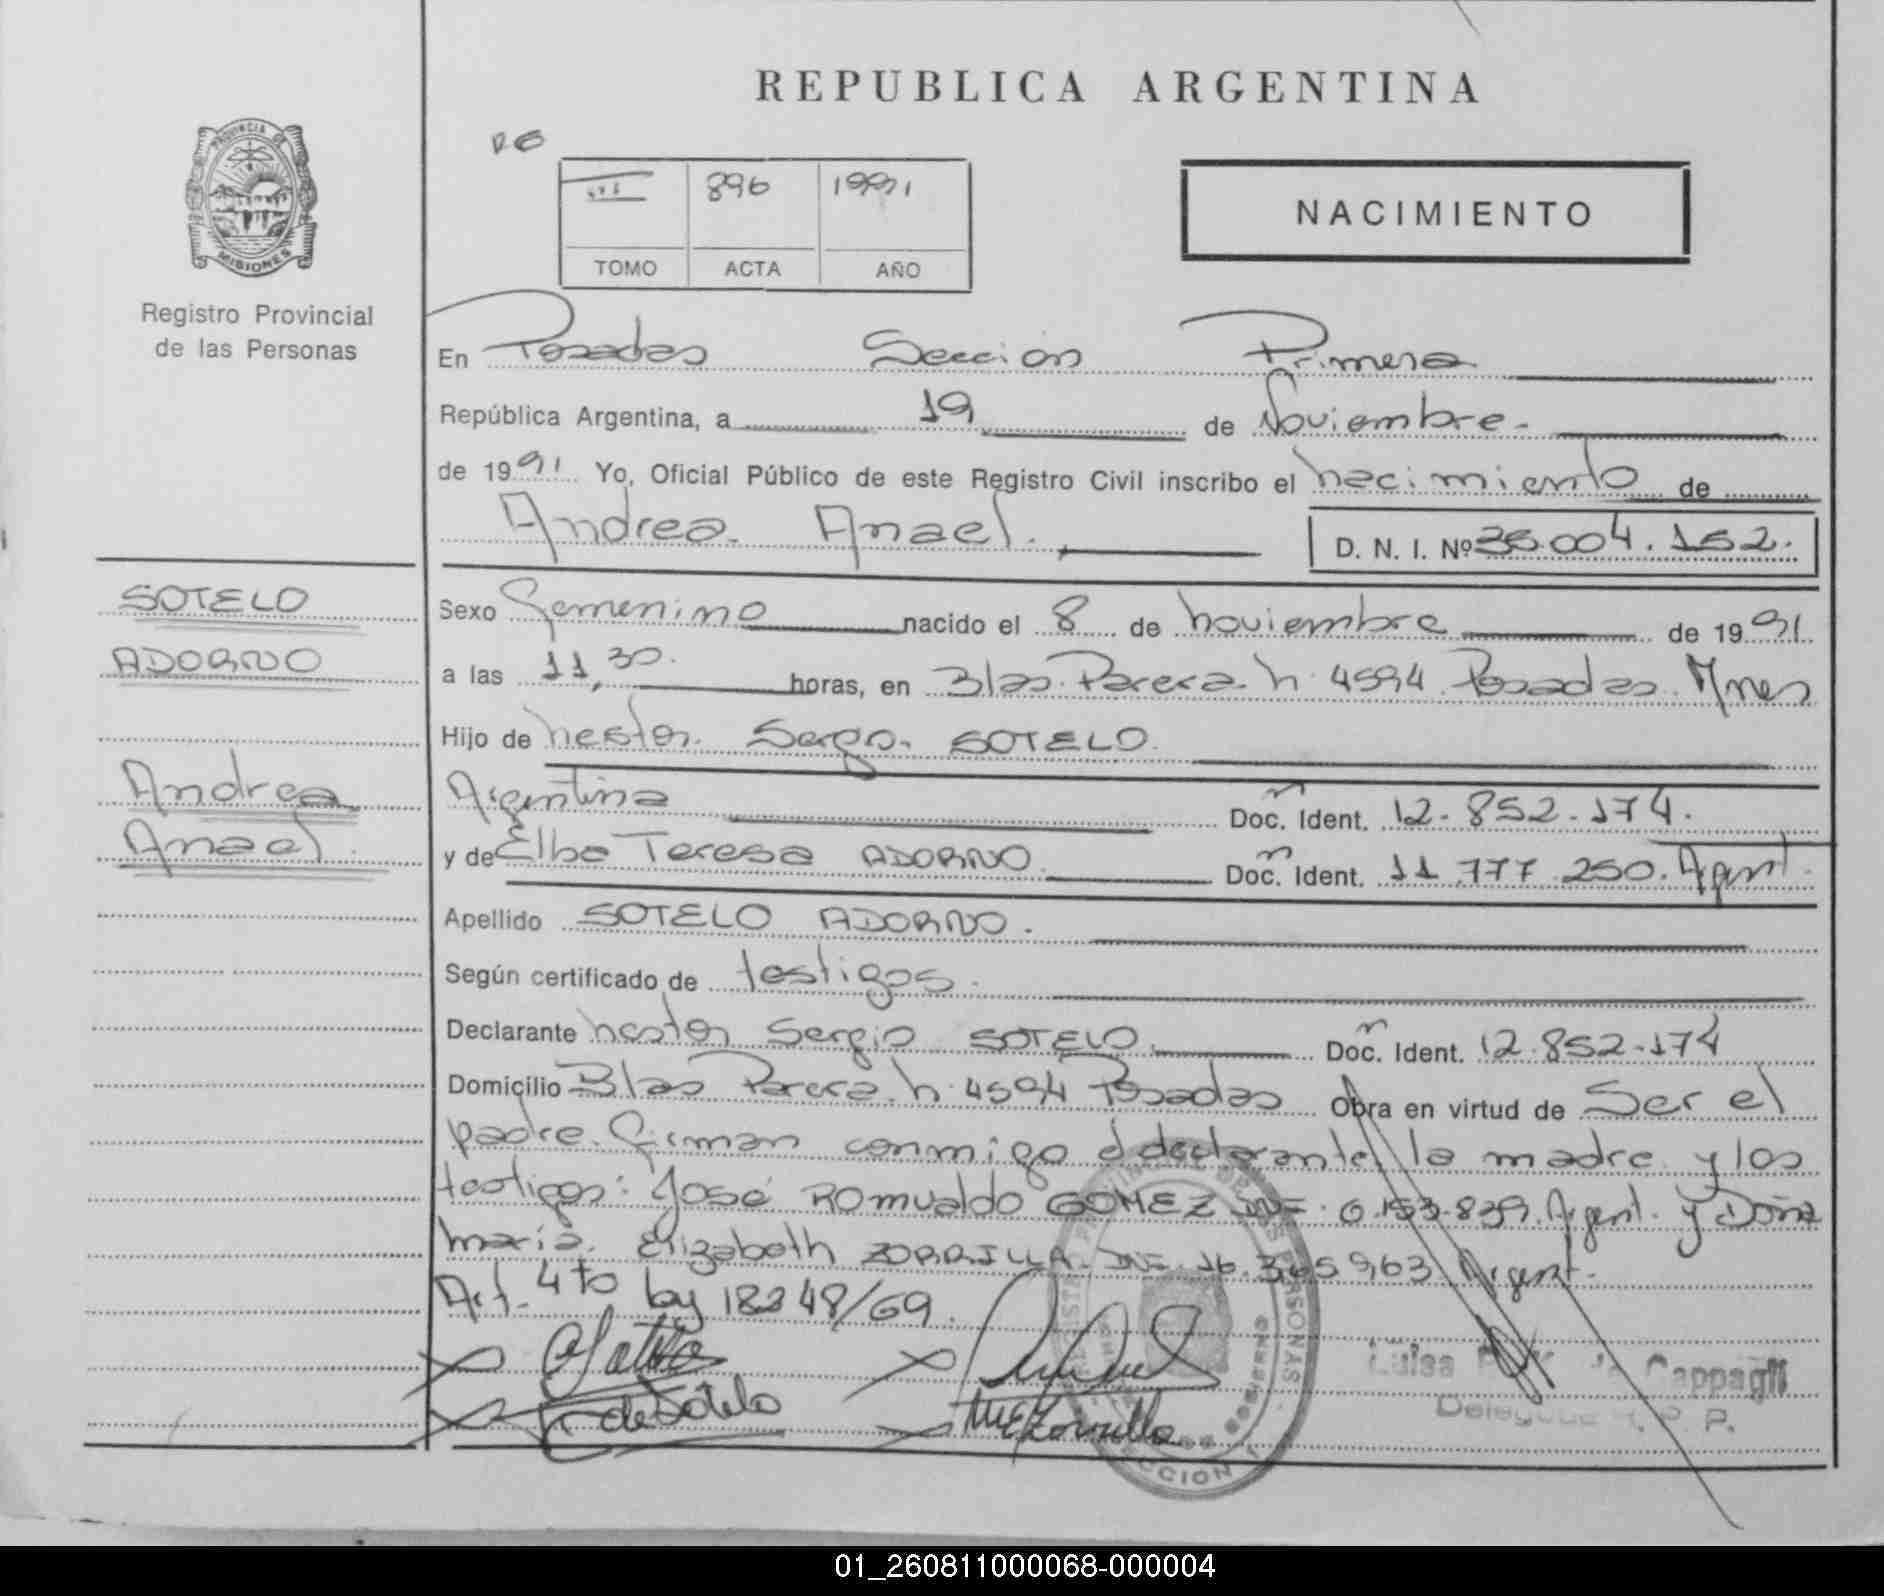 REPUBLICA ARGENTINA
PROVINCIA DE
MISIONES
Registro Provincial
de las Personas
896 1991
TOMO ACTA AÑO
NACIMIENTO
En Posadas Sección Primera
República Argentina, a 19 de Noviembre.
de 1991 Yo, Oficial Público de este Registro Civil inscribo el nacimiento de
Andrea Anael.
D. N. I. Nº 36.004.152.
SOTELO
ADORNO
Andrea
Anael
Sexo Femenino nacido el 8 de noviembre de 1991
a las 11,30. horas, en Blas Parera h 4594 Posadas Mnes
Hijo de nestor Sergo. SOTELO.
Argentina Doc. Ident. 12.852.174.
y de Elba Teresa ADORNO. Doc. Ident. 11.777.250. Argent.
Apellido SOTELO ADORNO.
Según certificado de testigos.
Declarante nestor Sergio SOTELO. Doc. Ident. 12.852.174
Domicilio Blas Parera h 4594 Posadas Obra en virtud de Ser el
padre. Firman conmigo el declarante, la madre y los
testigos: José ROMUALDO GOMEZ 6.153.839. Argent. y Doña
maria Elizabeth ZORRILLA 16.365963 Argent.
Art. 4to ley 18248/69.
de Sotelo
MEZorrilla
Luisa Cappagli
R. P. P.
01_260811000068-000004